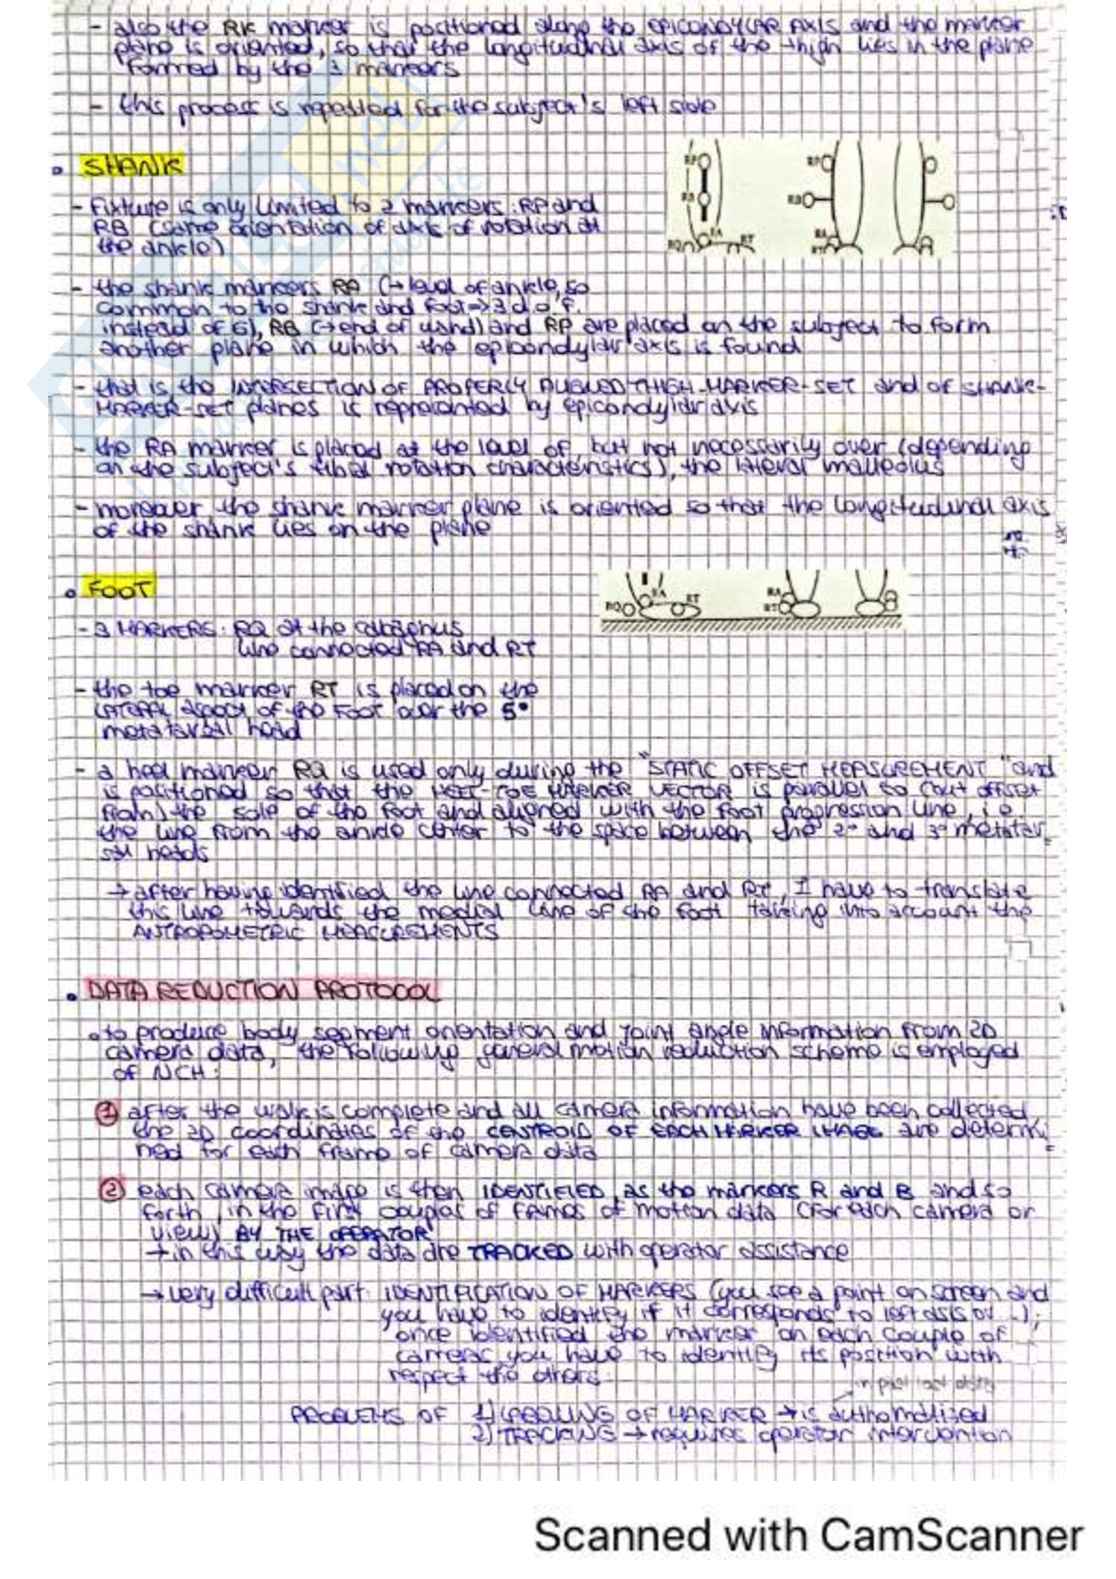 - also the RK marker is positioned along the EPICONDYLAR AXIS and the marker
plane is oriented, so that the longitudinal axis of the thigh lies in the plane
formed by the 3 markers
- this process is repeated for the subject's left side
• SHANK
- fixture is only limited to 2 markers: RP and
RB (same orientation of axis of rotation at
the ankle)
RP
RB
RA
RQ
RT
RP
RB
RA
RT
- the shank markers RA (→ level of ankle, so
common to the shank and foot → 3 d.o.f.
instead of 6), RB (→ end of wand) and RP are placed on the subject to form
another plane in which the epicondylar axis is found
- that is the INTERSECTION OF PROPERLY ALIGNED THIGH-MARKER-SET and of SHANK-
MARKER-SET planes is represented by epicondylar axis
- the RA marker is placed at the level of, but not necessarily over (depending
on the subject's tibial rotation characteristics), the lateral malleolus
- moreover the shank marker plane is oriented so that the longitudinal axis
of the shank lies on the plane
• FOOT
RQ
RA
RT
RA
RT
- 3 MARKERS: RQ at the calcagnus
line connected RA and RT
- the toe marker RT is placed on the
LATERAL aspect of the FOOT over the 5°
metatarsal head
- a heel marker RQ is used only during the "STATIC OFFSET MEASUREMENT" and
is positioned so that the HEEL-TOE MARKER VECTOR is parallel to (but offset
from) the sole of the foot and aligned with the foot progression line, i.e.
the line from the ankle center to the space between the 2° and 3° metatar
sal heads
→ after having identified the line connected RA and RT, I have to translate
this line towards the medial line of the foot taking into account the
ANTROPOMETRIC MEASUREMENTS
• DATA REDUCTION PROTOCOL
• to produce body segment orientation and joint angle information from 2D
camera data, the following general motion reduction scheme is employed
of NCH:
1 after the walk is complete and all camera information have been collected,
the 2D coordinates of the CENTROID OF EACH MARKER IMAGE are determi
ned for each frame of camera data
2 each camera image is then IDENTIFIED, as the markers R and B and so
forth, in the first couples of frames of motion data (for each camera or
view) BY THE OPERATOR
→ in this way the data are TRACKED with operator assistance
→ very difficult part: IDENTIFICATION OF MARKERS (you see a point on screen and
you have to identify if it corresponds to left asis or ..);
once identified the marker on each couple of
cameras you have to identify its position with
respect the others.
PROBLEMS OF 1) LABELLING OF MARKER → is authomatised
2) TRACKING → requires operator intervention
Scanned with CamScanner